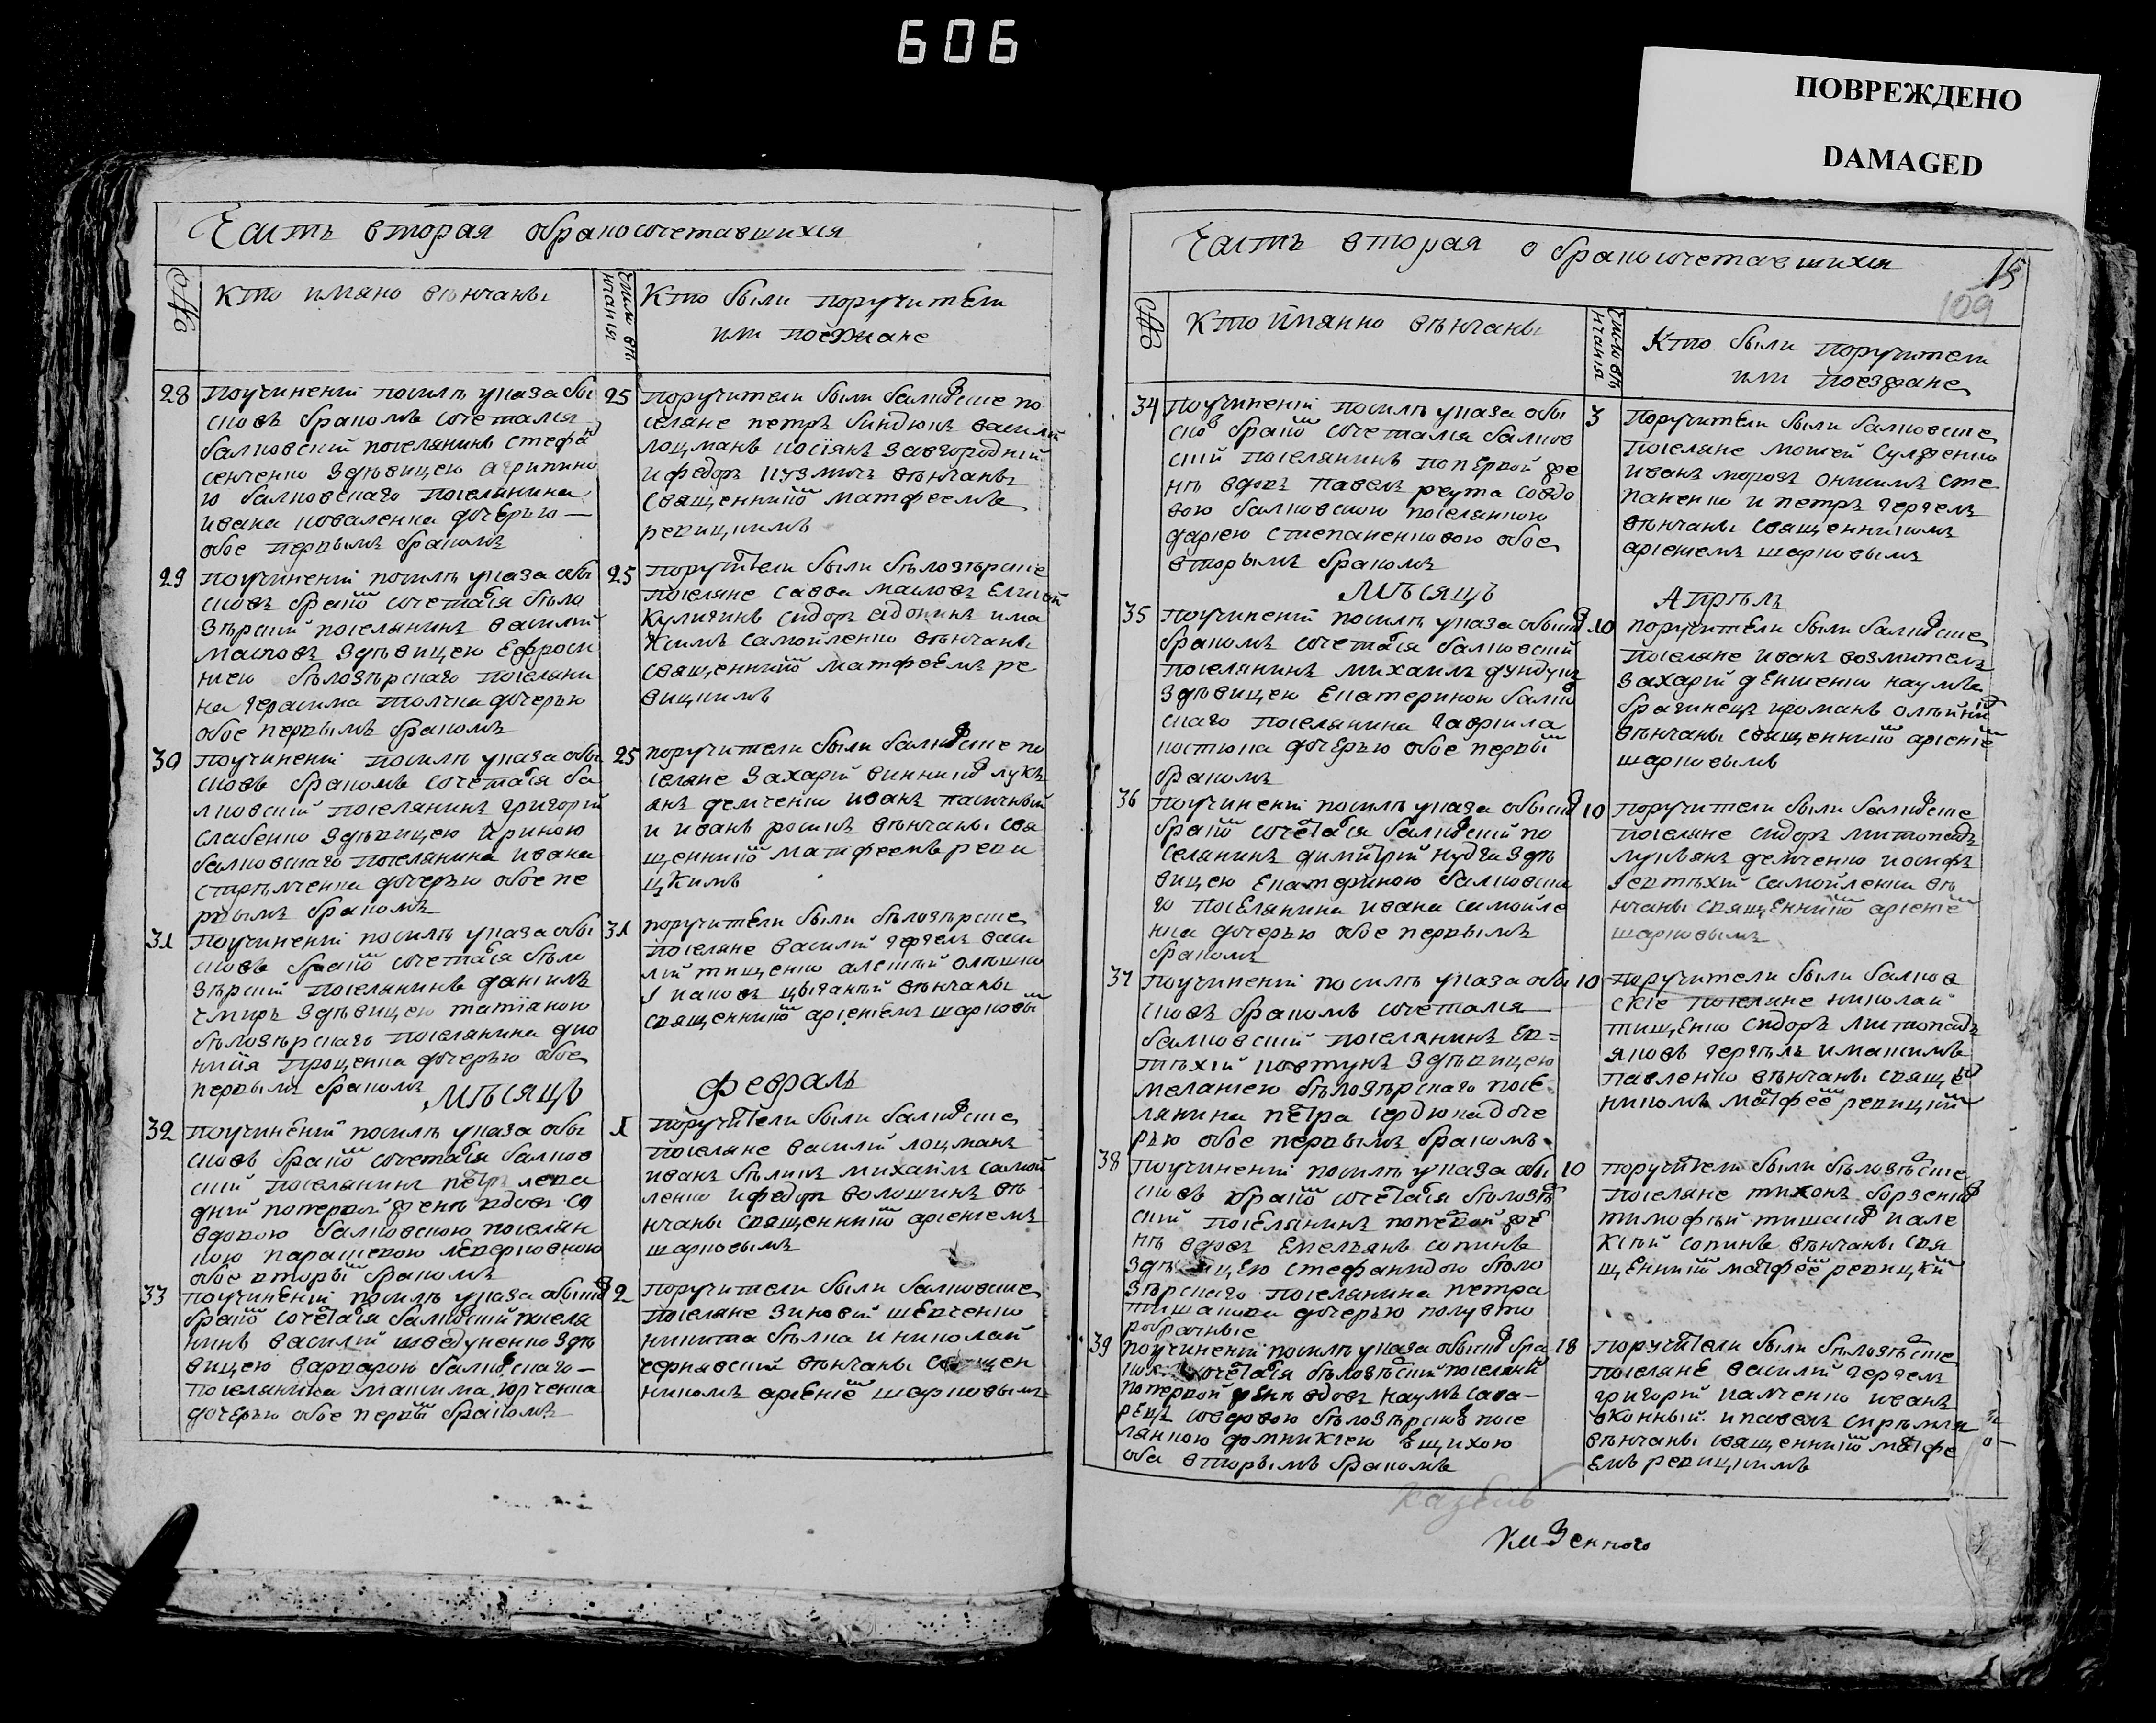 606
ПОВРЕЖДЕНО
DAMAGED
Часть вторая обракосочетавшихся
№
Кто имяно вѣнчаны
Число вѣ
нчанія
Кто были поручители
или поезжане
28 поучиненіи посилѣ указа обы
сковъ бракомъ сочетался
балковскій поселянинъ стефан
сенченко здѣвицею агрипино
ю балковскаго поселянина
ивана коваленка дочерью
обое первымъ бракомъ
25 поручители были балковские по
селяне петръ биндюкъ василй
лоцманъ касіянъ завгородній
ифедоръ кузмичъ вѣнчаны
священником матфеемъ
ревицкимъ
29 поучиненіи посилѣ указа обы
сковъ браком сочетался бѣло
зѣрский поселянинъ василий
масловъ здѣвицею Ефроси
ниею бѣлозѣрскаго поселяни
на герасима толчка дочерью
обое первымъ бракомъ
25 поручители были бѣлозѣрские
поселяне савва масловъ Елисей
кулишинъ сидоръ евдокимъ има
ксимъ самойленко вѣнчаны
священником матфеемъ ре
вицкимъ
30 поучиненіи посилѣ указа обы
сковъ бракомъ сочетался ба
лковский поселянинъ григорий
слабенко здѣвицею Ириною
балковскаго поселянина ивана
стрѣлченка дочерью обое пе
рвымъ бракомъ
25 поручители были балковские по
селяне захарий винников лукъ
янъ демченко иванъ пасичный
и иванъ росикъ вѣнчаны свя
щенником матфеемъ реви
цкимъ
31 поучиненіи посилѣ указа обы
сковъ браком сочетался бѣло
зѣрский поселянинъ данилъ
чмиръ здѣвицею татіяною
бѣлозѣрскаго поселянина дио
нисія проценка дочерью обое
первымъ бракомъ
31 поручители были бѣлозѣрские
поселяне василий чертелъ васи
лий тищенко алексѣй олѣшко
Iяковъ цыганъй вѣнчаны
священником арсениемъ шарковым
Мѣсяцъ Февраль
32 поучиненіи посилѣ указа обы
сковъ браком сочетался балков
ский поселянинъ петръ лева
дний поперкой женѣ вдовъ со
вдовою балковскою поселян
кою параскевою
обое вторым бракомъ
1 поручители были балковские
поселяне василий лоцманъ
иванъ бѣликъ михаилъ самой
ленко ифедоръ волошинъ вѣ
нчаны священником арсениемъ
шарковымъ
33 поучиненіи посилѣ указа обысков
браком сочетался балковский поселя
нинъ василий шведуненко здѣ
вицею варварою балковскаго
поселянина максима юрченка
дочерью обое первым бракомъ
2 поручители были балковские
поселяне зиновий шевченко
никита бѣлка и николай
чернявский вѣнчаны священ
никомъ арсение шарковымъ
Часть вторая о бракосочетавшихся
15
109
№
Кто имянно вѣнчаны
Число вѣ
нчанія
Кто были поручители
или поезжане
34 поучиненіи посилѣ указа обы
сков браком сочетался балков
ский поселянинъ поперкой же
нѣ вдовъ павелъ реута совдо
вою балковскою поселянкою
дариею степаненковою обое
вторымъ бракомъ
3 поручители были балковские
поселяне мойсей сулженко
иванъ морозъ онисимъ сте
паненко и петръ чертелъ
вѣнчаны священникомъ
арсениемъ шарковымъ
Мѣсяцъ Апрѣль
35 поучиненіи посилѣ указа обысков
бракомъ сочетался балковский
поселянинъ михаилъ дундукъ
здѣвицею Екатериною балков
скаго поселянина гавриила
костюка дочерью обое первым
бракомъ
10 поручители были балковские
поселяне иванъ возмителъ
захарий денисенко наумъ
брагинецъ ироманъ олѣйник
вѣнчаны священником арсение
шарковымъ
36 поучиненіи посилѣ указа обысков
браком сочетался балковский по
селянинъ димитрий нудга здѣ
вицею Екатериною балковска
го поселянина ивана самойле
нка дочерью обое первымъ
бракомъ
10 поручители были балковские
поселяне сидоръ листопадъ
лукьянъ демченко иосифъ
Iевтѣхий самойленки вѣ
нчаны священником арсение
шарковымъ
37 поучиненіи посилѣ указа обы
сковъ бракомъ сочетался
балковский поселянинъ Ев=
тѣхий ковтунъ здѣвицею
меланиею бѣлозѣрскаго посе
лянина петра сердюка доче
рью обое первымъ бракомъ
10 поручители были балков
ские поселяне николай
тищенко сидоръ листопадъ
яковъ чертѣлъ имаксимъ
павленко вѣнчаны священ
никомъ матфее ревицким
38 поучиненіи посилѣ указа обы
сковъ браком сочетался бѣлозѣр
ский поселянинъ поперкой же
нѣ вдовъ Емельянъ сопинъ
здѣвицею стефанидою бѣло
зѣрскаго поселянина петра
тишакова дочерью полувто
робрачные
10 поручители были бѣлозѣрские
поселяне тихонъ борзенков
тимофѣй тишаков иале
ксѣй сопинъ вѣнчаны свя
щенником матфее ревицким
39 поучиненіи посилѣ указа обысков бра
комъ сочетался бѣлозѣрский поселянин
поперкой женѣ вдовъ наумъ сава
рецъ совдовою бѣлозѣрской посе
лянкою домникиею Ещихою
оба вторымъ бракомъ
18 поручители были бѣлозѣрские
поселяне василий чертелъ
григорий калченко иванъ
оконный ипавелъ скрыпка
вѣнчаны священником матфе
емъ ревицкимъ
Казенъ
Казенного